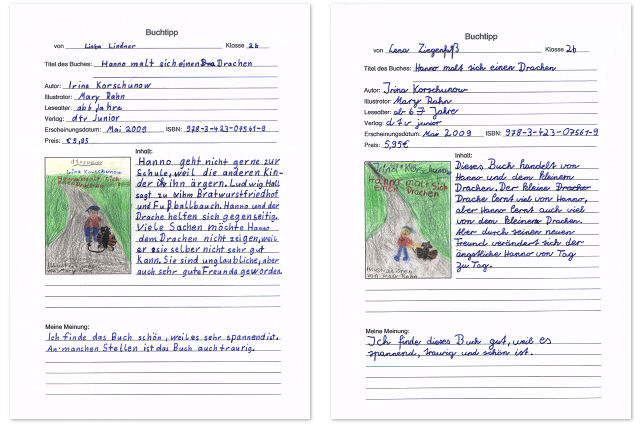 Buchtipp
von Lisha Lindner Klasse 2b
Titel des Buches: Hanno malt sich einen Drachen
Autor: Irina Korschunow
Illustrator: Mary Rahn
Lesealter: ab 6 Jahre
Verlag: dtv Junior
Erscheinungsdatum: Mai 2009 ISBN: 978-3-423-07561-9
Preis: € 5,95
Inhalt:
Hanno geht nicht gerne zur
Schule, weil die anderen Kin-
der ihn ärgern. Ludwig Hall
sagt zu ihm Bratwurstfriedhof
und Fußballbauch. Hanno und der
Drache helfen sich gegenseitig.
Viele Sachen möchte Hanno
dem Drachen nicht zeigen, weil
er sie selber nicht sehr gut
kann. Sie sind unglaubliche, aber
auch sehr gute Freunde geworden.
dtv junior
Irina Korschunow
Hanno malt sich
einen Drachen
Meine Meinung:
Ich finde das Buch schön, weil es sehr spannend ist.
An manchen Stellen ist das Buch auch traurig.
Buchtipp
von Lena Ziegenfuß Klasse 2b
Titel des Buches: Hanno malt sich einen Drachen
Autor: Irina Korschunow
Illustrator: Mary Rahn
Lesealter: ab 6 7 Jahre
Verlag: dtv junior
Erscheinungsdatum: Mai 2009 ISBN: 978-3-423-07561-9
Preis: 5,95€
Inhalt:
Dieses Buch handelt von
Hanno und dem kleinem
Drachen. Der kleine Drache
Drache lernt viel von Hanno,
aber Hanno lernt auch viel
von den kleinem Drachen.
Aber durch seinen neuen
Freund verändert sich der
ängstliche Hanno von Tag
zu Tag.
Irina Korschunow
Hanno malt sich
einen Drachen
Illustrationen
von Mary Rahn
Meine Meinung:
Ich finde dieses Buch gut, weil es
spannend, traurig und schön ist.